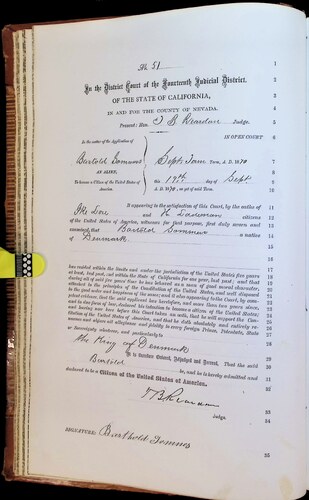 No 51
In the District Court of the Fourteenth Judicial District.
OF THE STATE OF CALIFORNIA,
IN AND FOR THE COUNTY OF NEVADA.
Present: Hon. T B Reardan Judge.
In the matter of the Application of
IN OPEN COURT
Bartold Sommes
AN ALIEN,
To become a Citizen of the United States of America.
Sept. Term, A. D. 1870
this 19th day of Sept
A. D. 1870, as yet of said Term.
It appearing to the satisfaction of this Court, by the oaths of
and citizens
of the United States of America, witnesses for that purpose, first duly sworn and
examined that Bartold Sommes a native
of Denmark
has resided within the limits and under the jurisdiction of the United States five years
at least, last past, and within the State of California for one year, last past; and that
during all of said five years time he has behaved as a man of good moral character,
attached to the principles of the Constitution of the United States, and well disposed
to the good order and happiness of the same; and it also appearing to the Court, by com-
petent evidence, that the said applicant has heretofore, and more than two years since,
and in due form of law, declared his intention to become a citizen of the United States;
and having now here before this Court taken an oath, that he will support the Con-
stitution of the United States of America, and that he doth absolutely and entirely re-
nounce and abjure all allegiance and fidelity to every foreign Prince, Potentate, State
or Sovereignty whatever, and particularly to
the King of Denmark
It is therefore Ordered, Adjudged and Decreed, That the said
Bartold be, and he is hereby admitted and
declared to be a Citizen of the United States of America.
T B Reardan
Judge.
SIGNATURE:
1
2
3
4
5
6
7
8
9
10
11
12
13
14
15
16
17
18
19
20
21
22
23
24
25
26
27
28
29
30
31
32
33
34
35